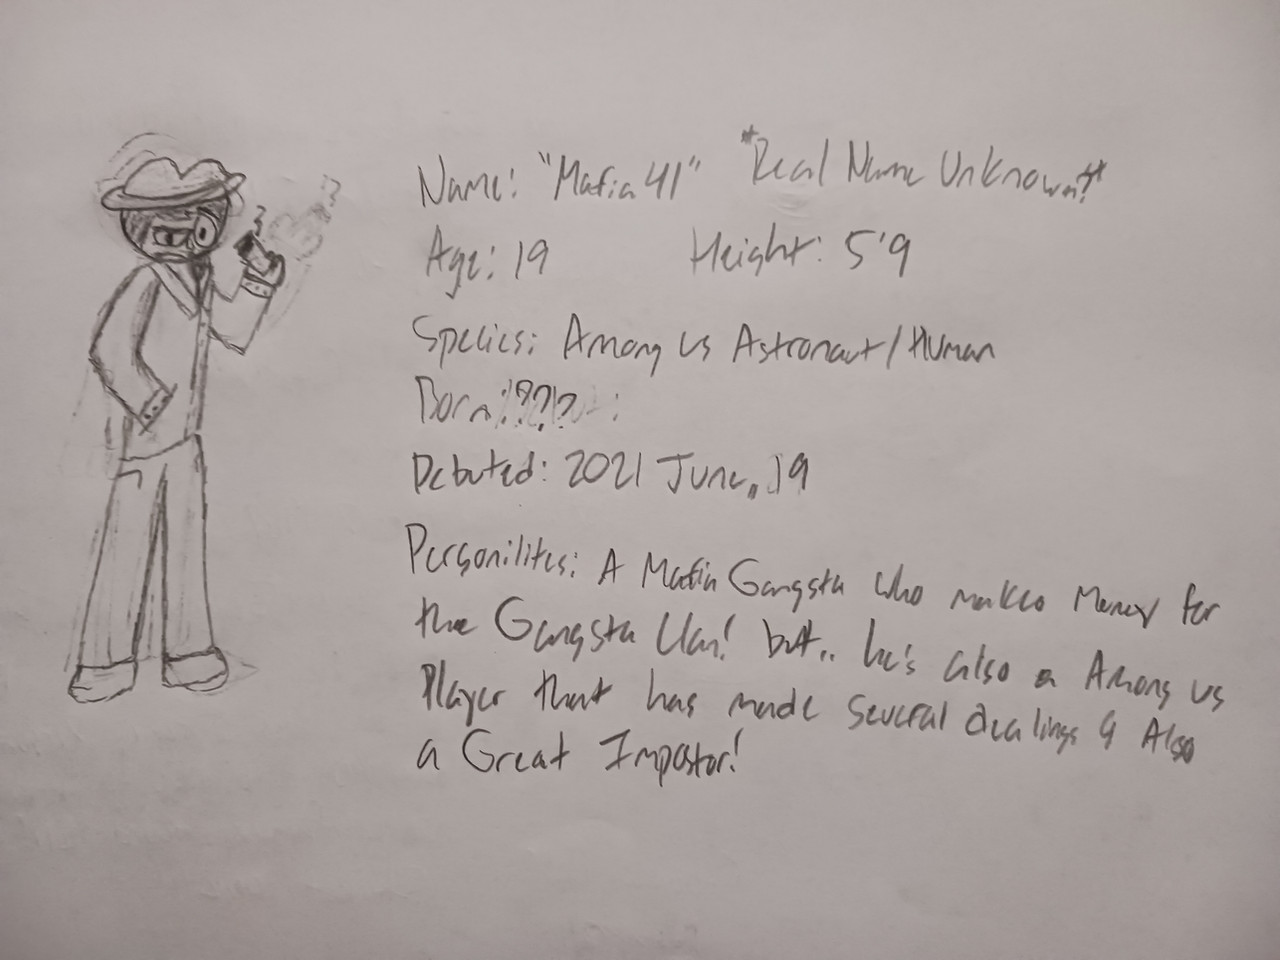 Name: "Mafia 41" *Real Name Unknown!*
Age: 19 Height: 5'9
Species: Among us Astronaut/Human
Born: ???
Debuted: 2021 June, 19
Personilites: A Mafia Gangsta who makes Money for
the Gangsta Clan! but.. he's also a Among us
Player that has made several dealings & Also
a Great Impostor!